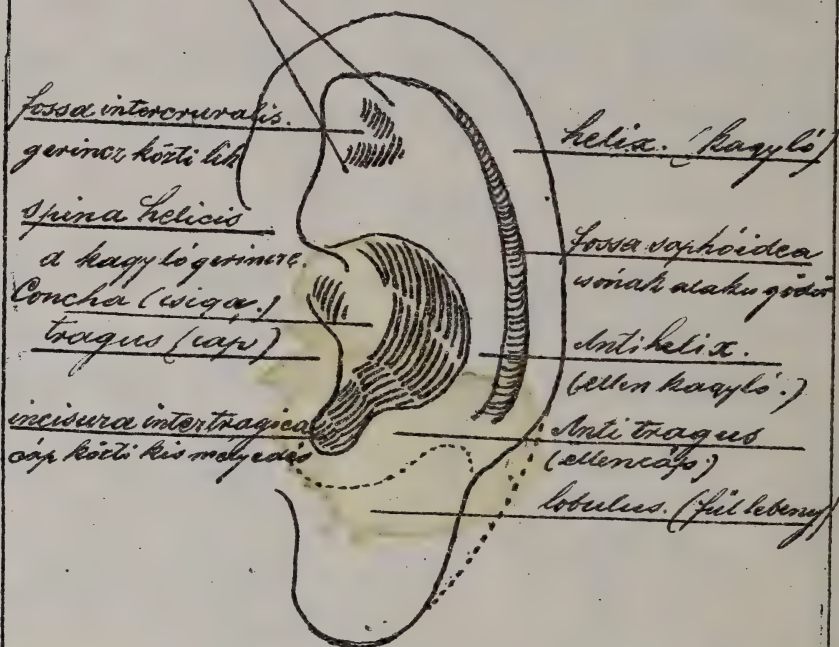 fossa intercruralis.
gerincz közti lik
spina helicis
a kagyló gerincze.
Concha (csiga.)
tragus (cáp)
incisura intertragica
cáp közti kis mélyedés
helix. (kagyló)
fossa scaphoidea
csónak alaku gödör
Antihelix.
(ellen kagyló.)
Anti tragus
(ellencáp.)
lobulus. (fül lebeny)